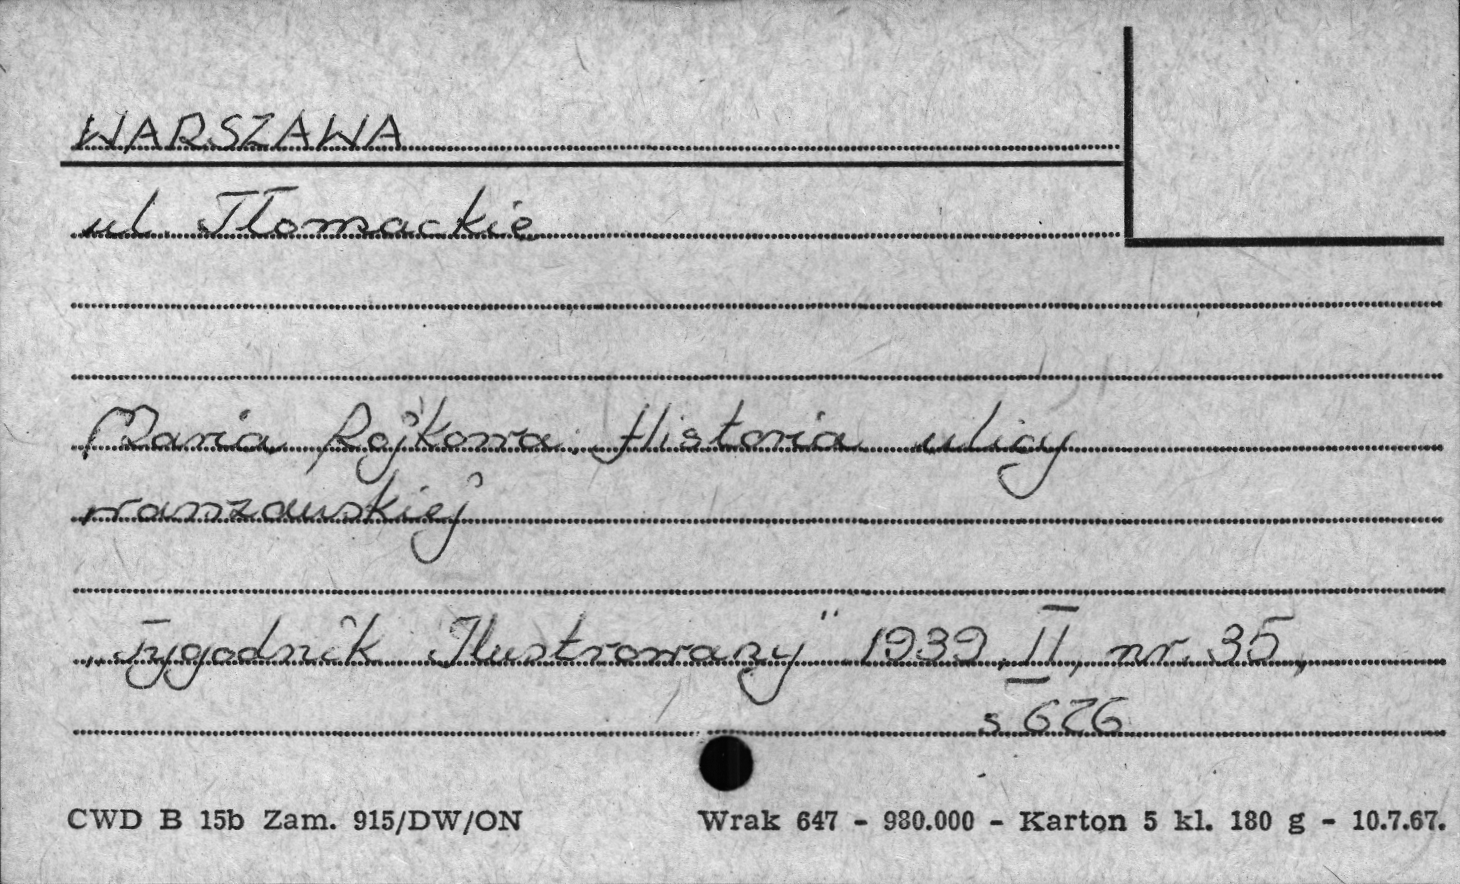 WARSZAWA
ul. Tłomackie
Maria Rojkowa. Historia ulicy
warszawskiej
„Tygodnik Ilustrowany" 1939, II, nr. 35,
s 626
CWD B 15b Zam. 915/DW/ON Wrak 647 - 980.000 - Karton 5 kl. 180 g - 10.7.67.